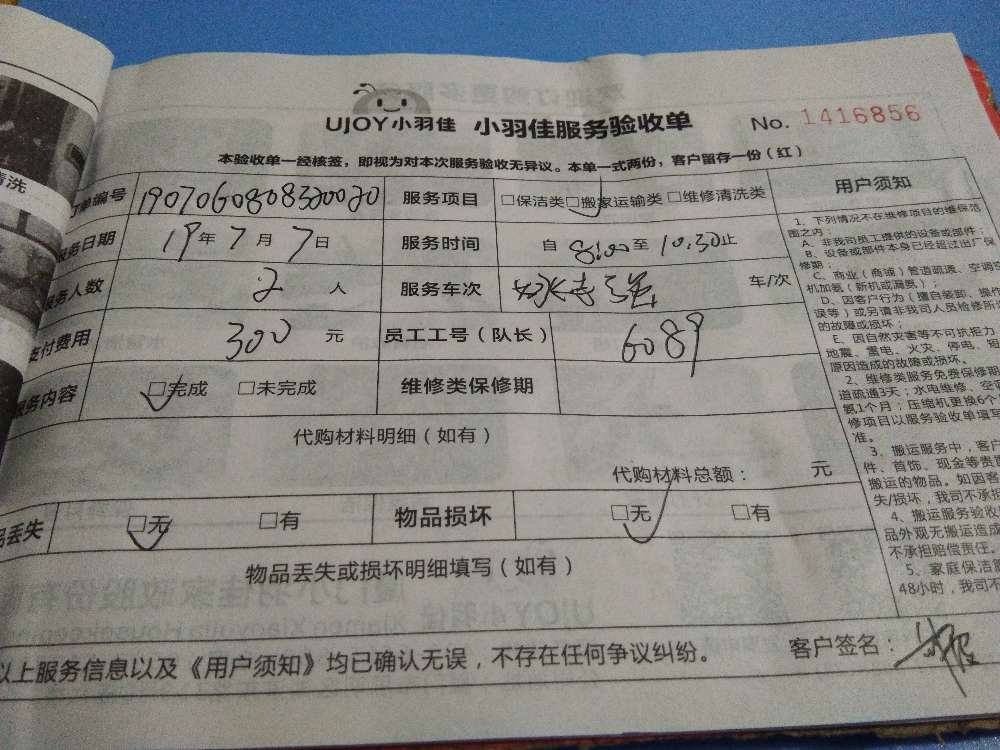 清洗
UJOY小羽佳 小羽佳服务验收单 No. 1416856
本验收单一经核签，即视为对本次服务验收无异议。本单一式两份，客户留存一份（红）
订单编号 1907060808320020 服务项目 □保洁类 □搬家运输类 □维修清洗类
服务日期 19年7月7日 服务时间 自 8:00 至 10:30 止
服务人数 2 人 服务车次 车/次
支付费用 300 元 员工工号（队长） 6089
服务内容 □完成 □未完成 维修类保修期
代购材料明细（如有）
代购材料总额： 元
品丢失 □无 □有 物品损坏 □无 □有
物品丢失或损坏明细填写（如有）
以上服务信息以及《用户须知》均已确认无误，不存在任何争议纠纷。 客户签名：
用户须知
1、下列情况不在维修项目的维保范
围之内：
A、非我司员工提供的设备或部件；
B、设备或部件本身已经超过出厂保
修期；
C、商业（商铺）管道疏通、空调空
机加氨（新机或漏氨）；
D、因客户行为（擅自装卸、操作
误等）或另请非我司人员检修所
的故障或损坏；
E、因自然灾害等不可抗拒力
地震、雷电、火灾、停电、短
原因造成的故障或损坏。
2、维修类服务免费保修期
道疏通3天；水电维修、空
氨1个月；压缩机更换6个
修项目以服务验收单填写
准。
3、搬运服务中，客户
件、首饰、现金等贵
搬运的物品。如因客
失/损坏，我司不承担
4、搬运服务验收
品外观无搬运造成
不承担赔偿责任。
5、家庭保洁服
48小时，我司不